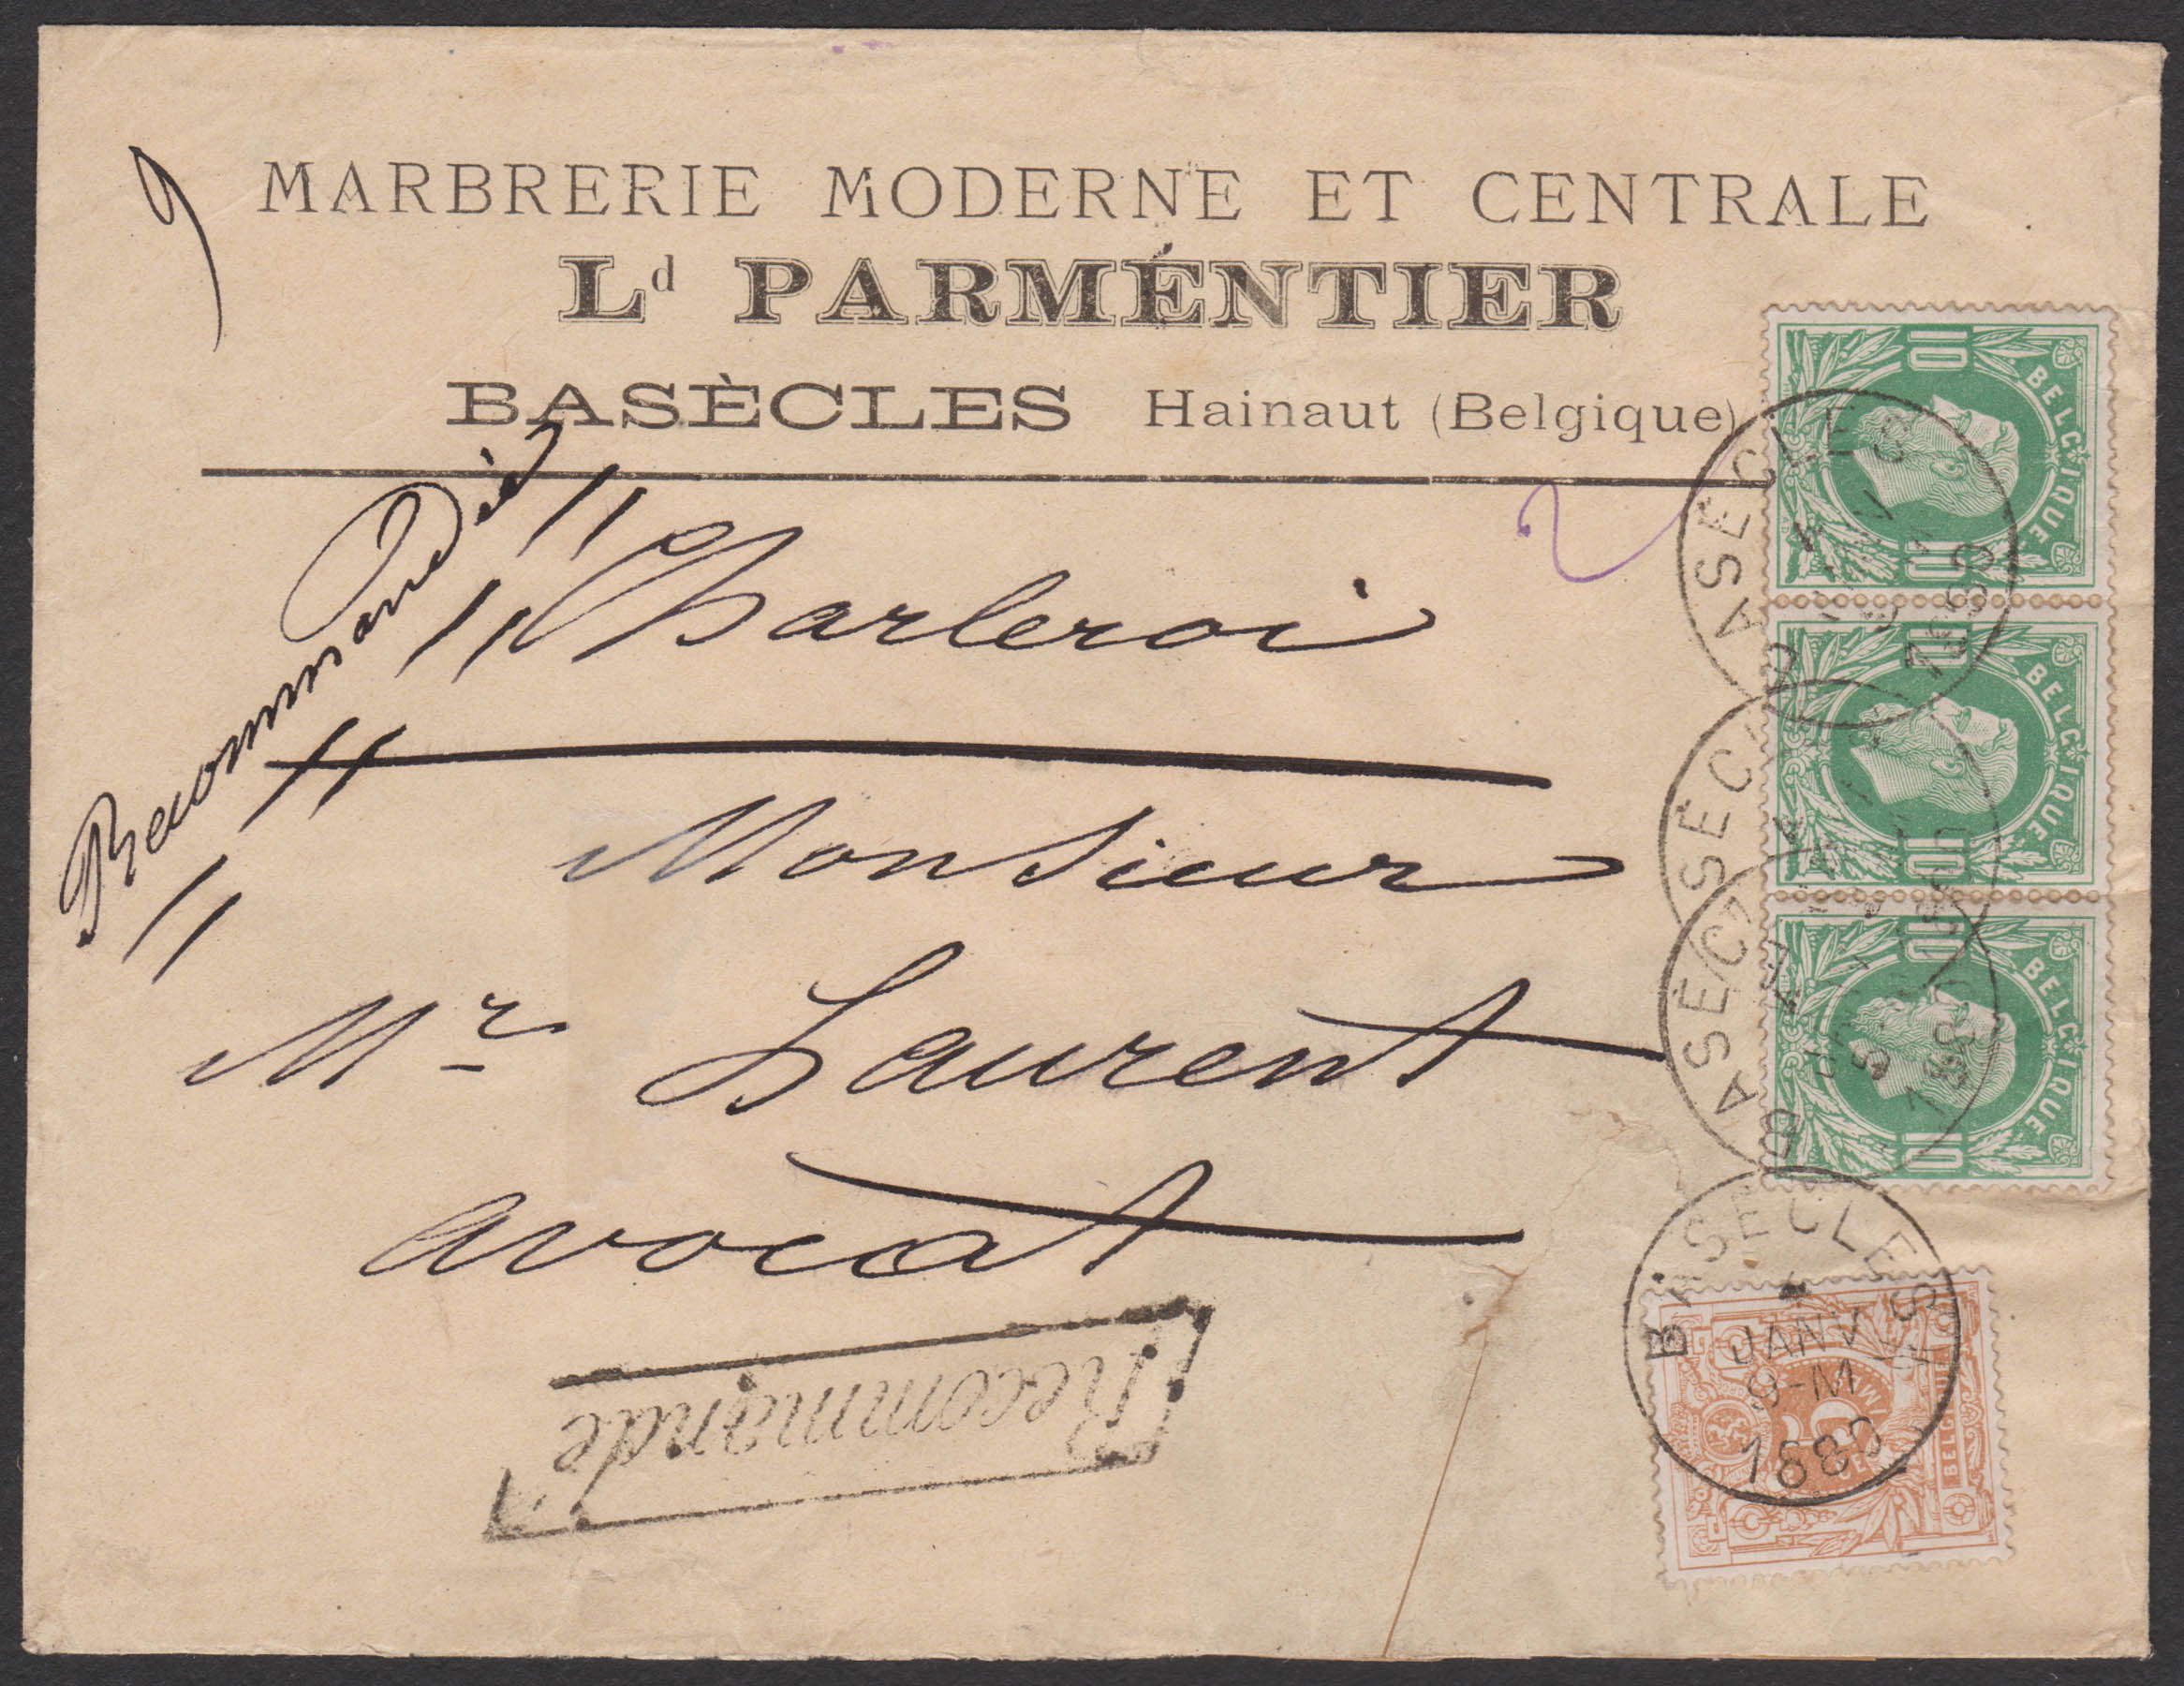 9
MARBRERIE MODERNE ET CENTRALE
Ld PARMÉNTIER
BASÈCLES Hainaut (Belgique)
Recommandée
Charleroi
Monsieur
Mr Laurent
avocat
Recommandé
10 BELGIQUE 10
10 BELGIQUE 10
10 BELGIQUE 10
BASECLES
BASECLES
BASECLES
BASECLES
4
JANV
9-M
BELGIQUE